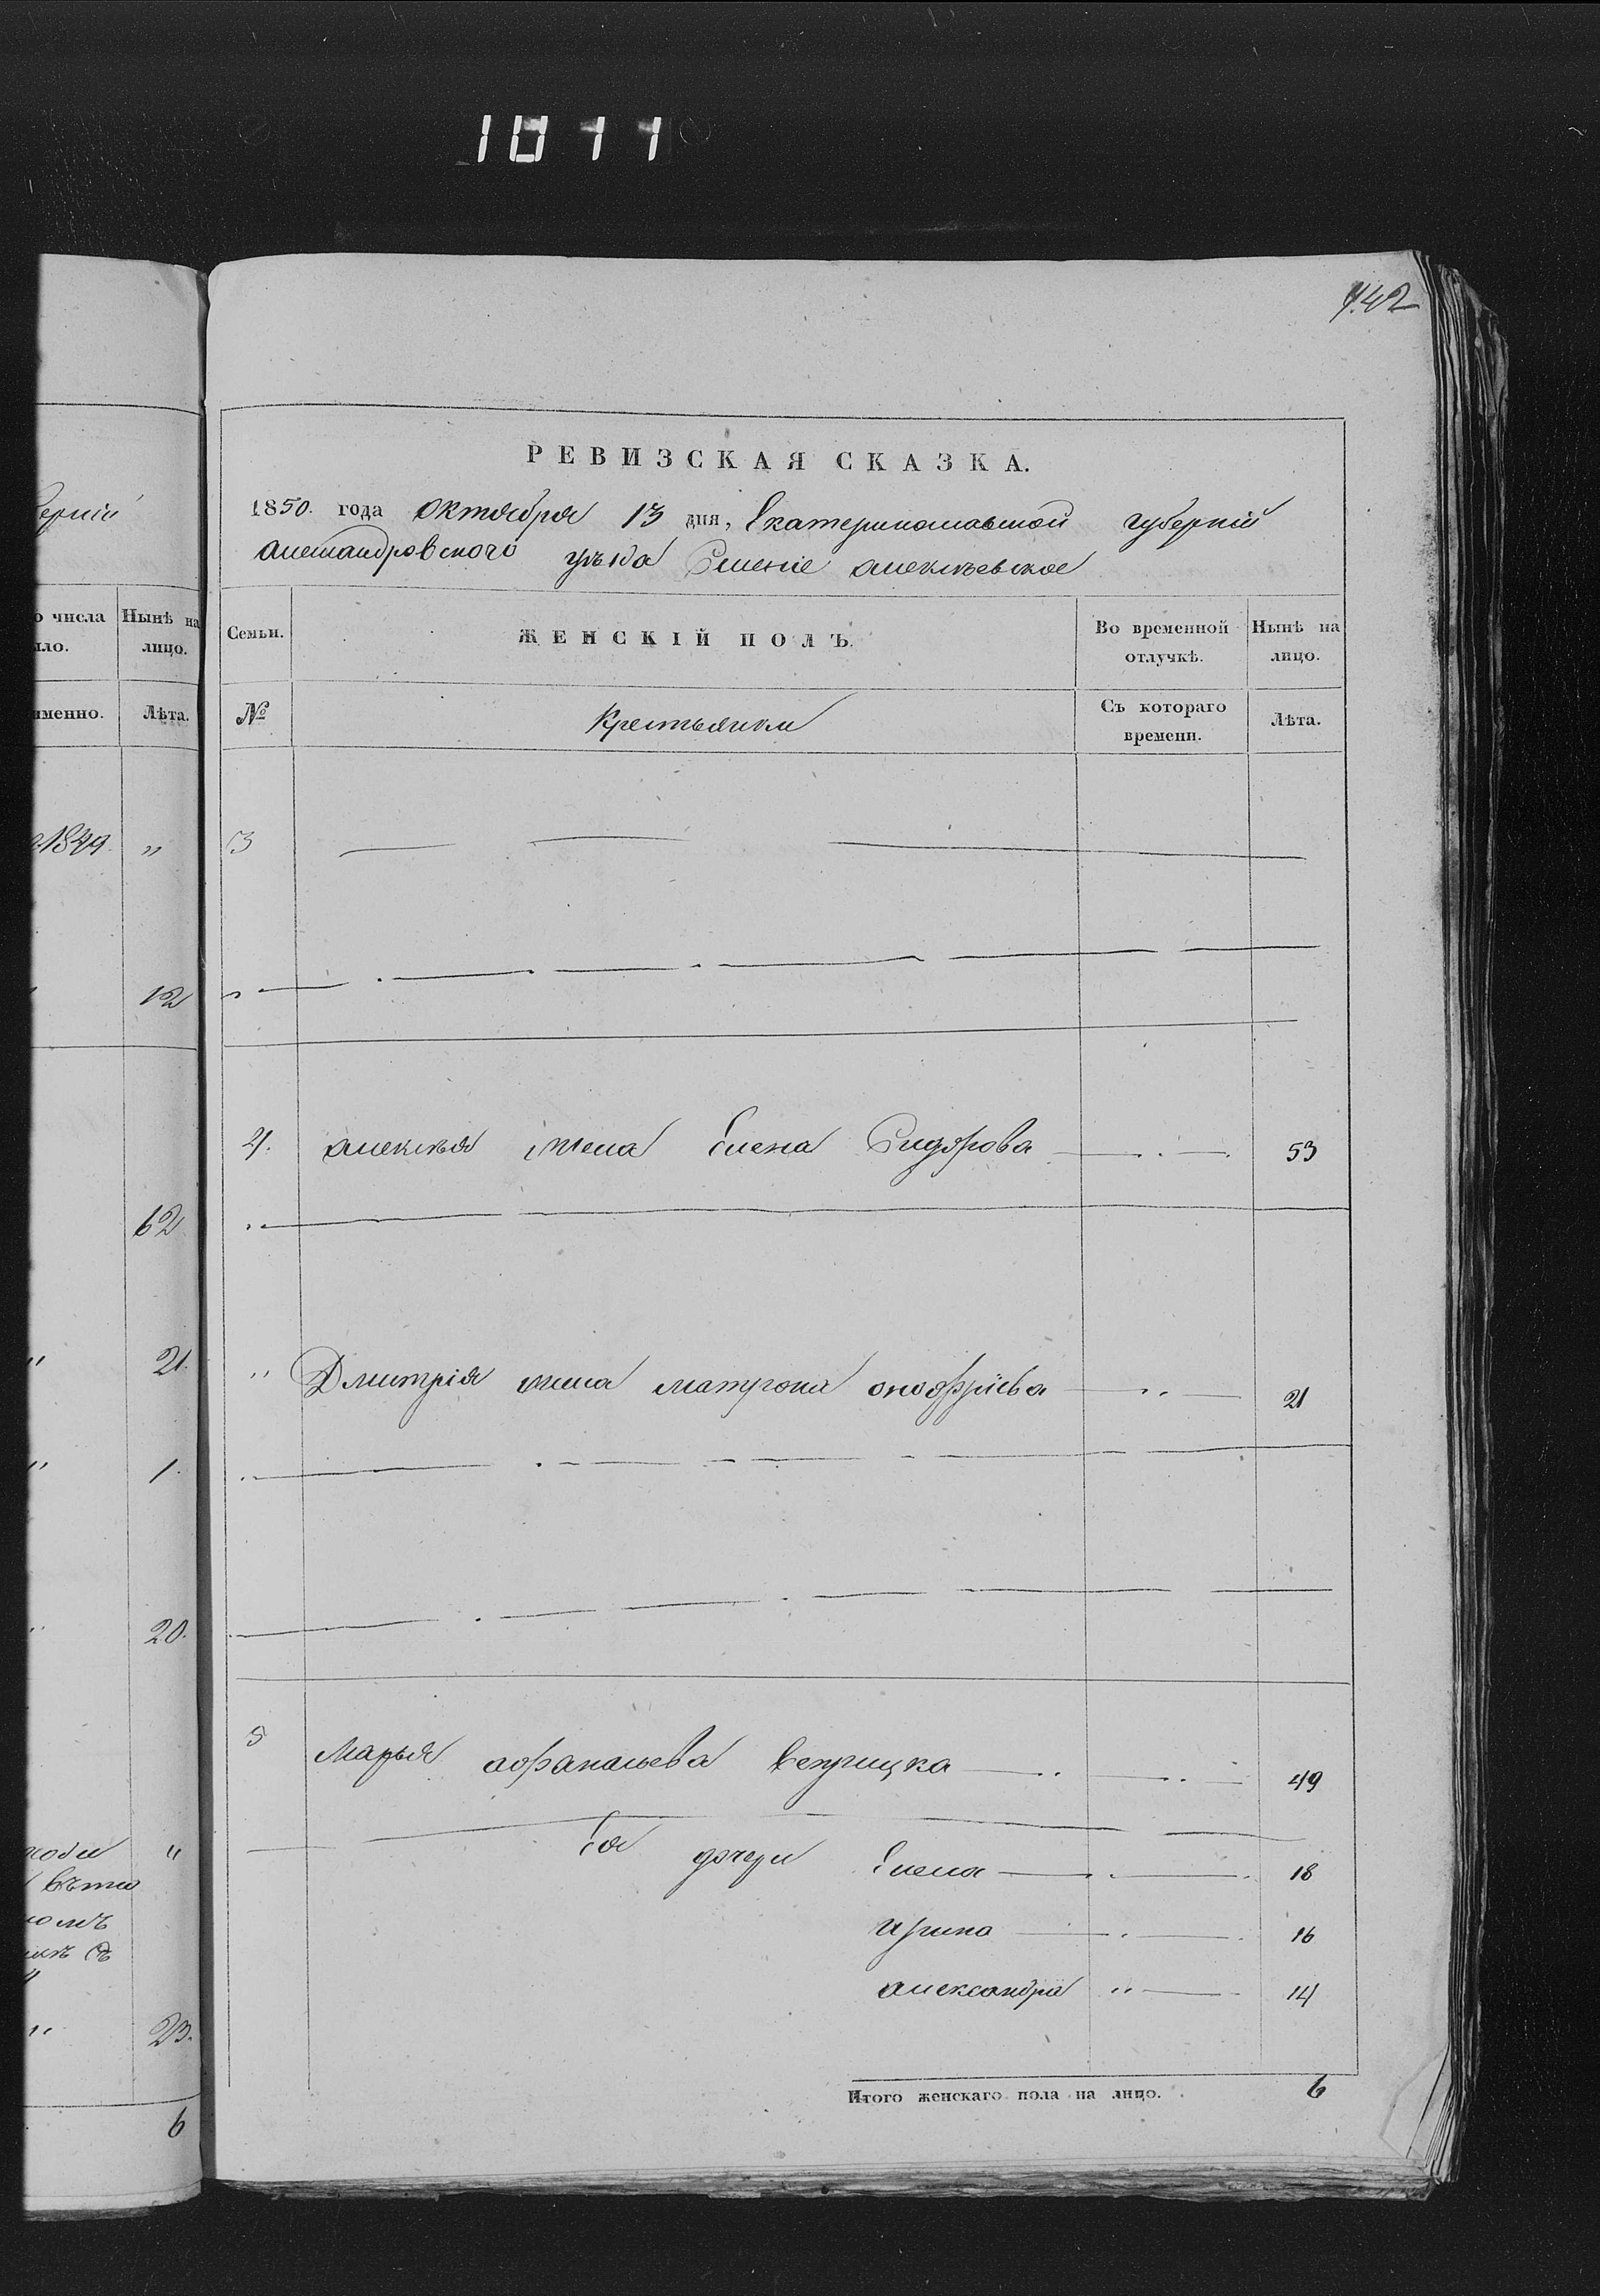 1011
742
РЕВИЗСКАЯ СКАЗКА.
1850. года октября 13 дня, Екатеринославской губерніи
александровского уѣзда Селеніе алексѣевское
Семьи. ЖЕНСКІЙ ПОЛЪ. Во временной отлучкѣ. Нынѣ на лицо.
№ Крестьянки Съ котораго времени. Лѣта.
3
4. алексѣя жена Елена Сидорова 53
" Дмитрія жена матрона онофріева 21
5 Марья афанасьева 49
Ея дочери Елена 18
Ирина 16
александра " 14
Итого женскаго пола на лицо. 6
ерніи
о числа Нынѣ на
ло. лицо.
именно. Лѣта.
1849 "
12
62
" 21.
" 1.
" 20.
"
" 23.
6